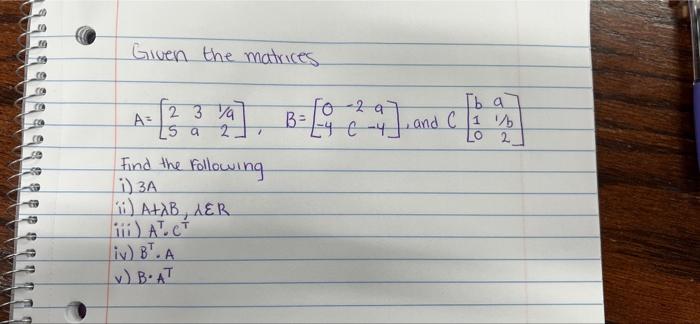 Given the matrices
A = [2 3 1/a; 5 a 2], B = [0 -2 a; -4 C -4], and C [b a; 1 1/b; 0 2]
Find the following
i) 3A
ii) A+λB, λεR
iii) Aᵀ. Cᵀ
iv) Bᵀ. A
v) B. Aᵀ